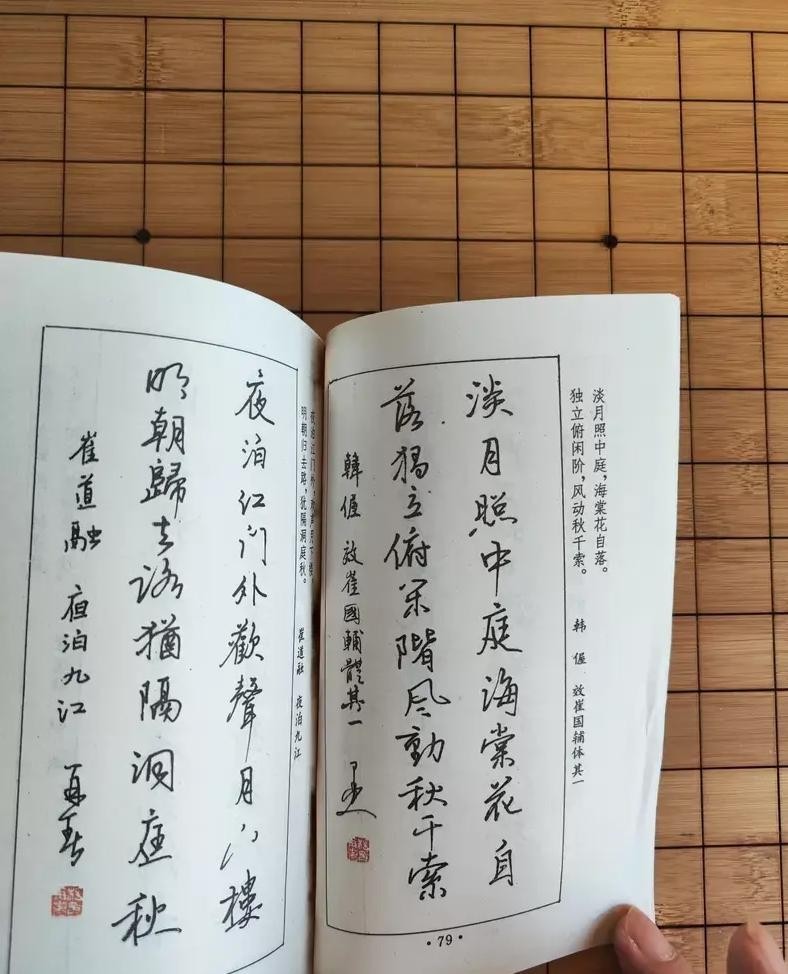 夜泊江门外,欢声月下楼。
明朝归去路,犹隔洞庭秋。
崔道融 夜泊九江
夜泊江门外歡聲月下樓
明朝歸去路猶隔洞庭秋
崔道融 夜泊九江
淡月照中庭,海棠花自落。
独立俯闲阶,风动秋千索。
韩偓 效崔国辅体其一
淡月照中庭海棠花自
落獨立俯閑階风動秋千索
韓偓 效崔國輔體其一
·79·